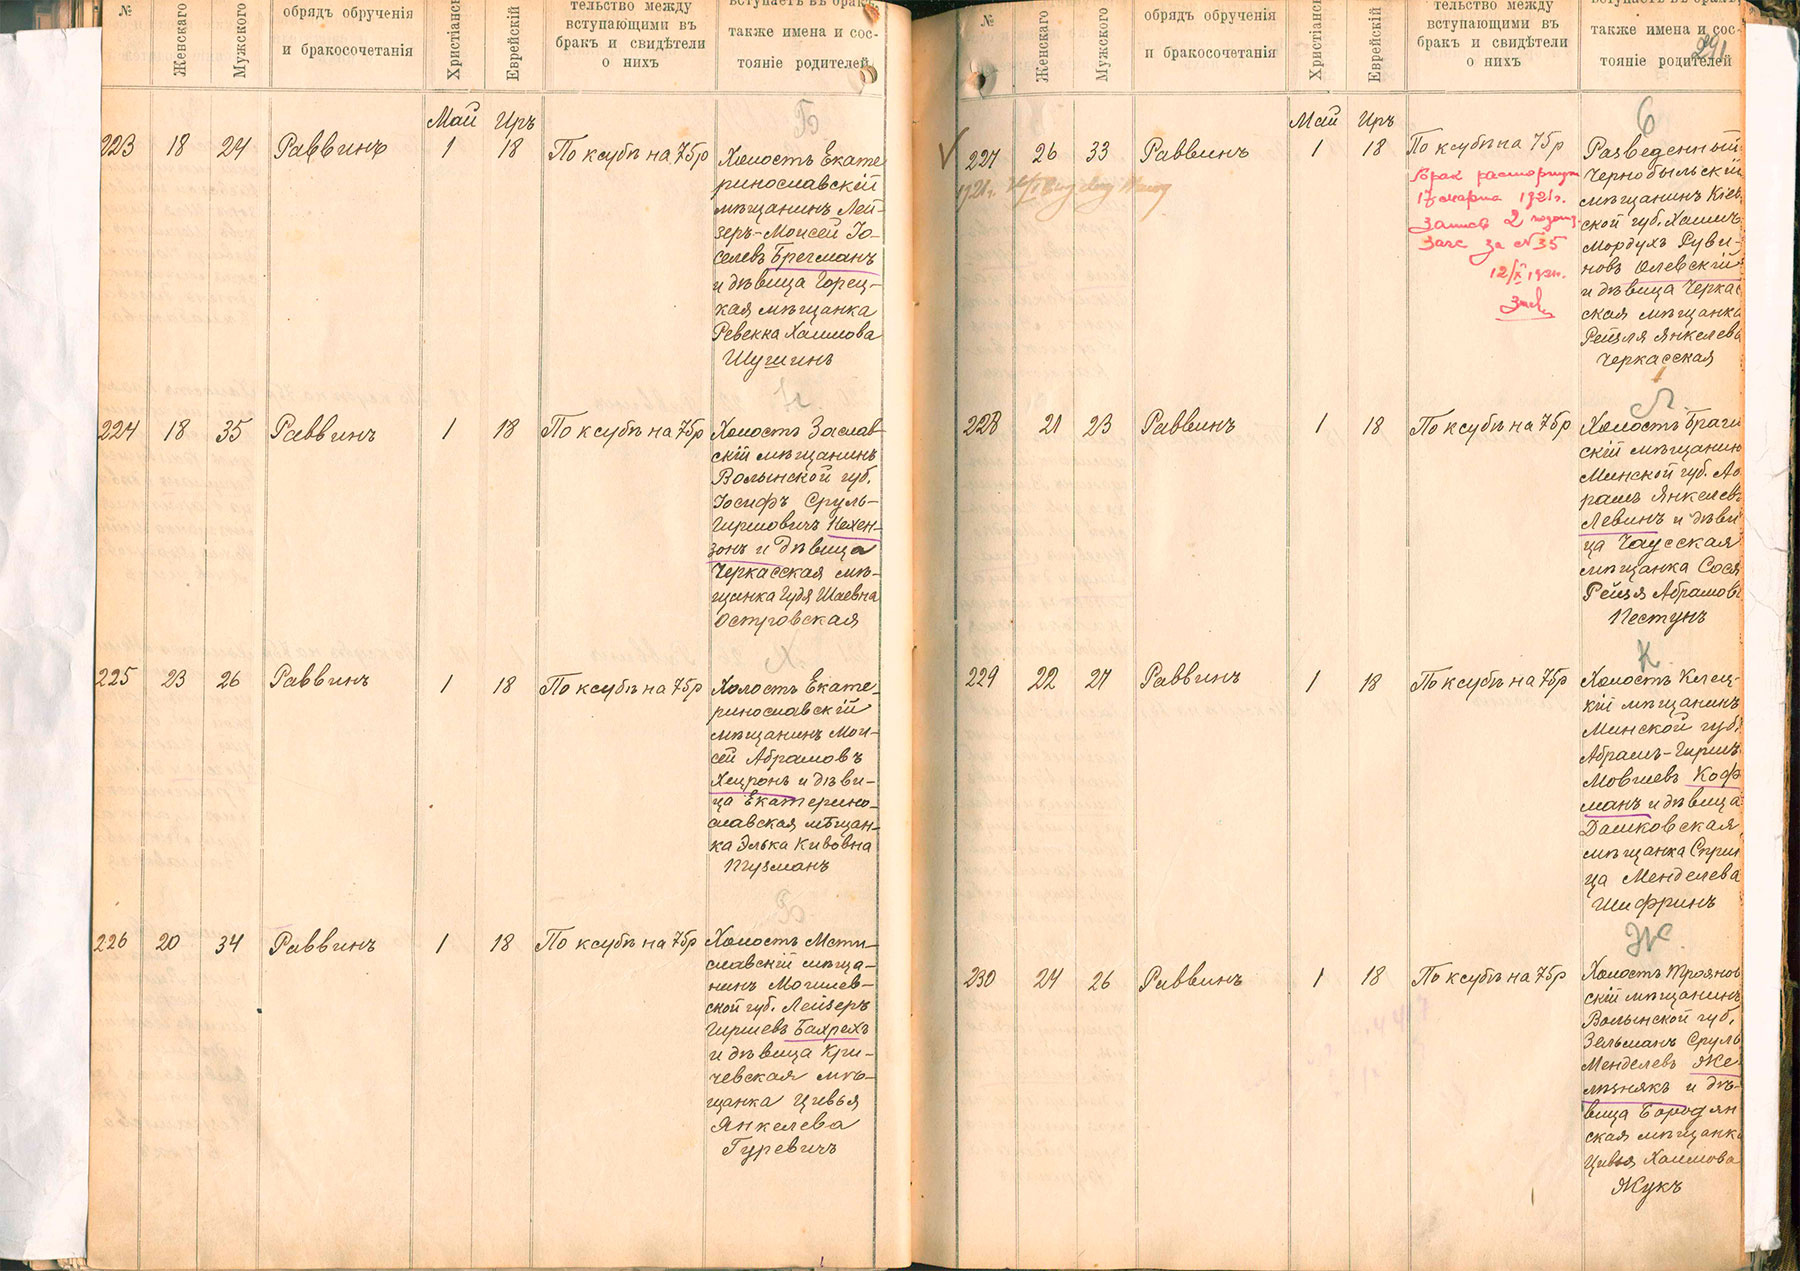 №
Женскаго
Мужского
обрядъ обрученія
и бракосочетанія
Христіанс
Еврейскій
тельство между
вступающими въ
бракъ и свидѣтели
о нихъ
вступаетъ въ бракъ,
также имена и сос-
тояніе родителей
Май Иръ
Б
223 18 24 Раввинъ 1 18 По ксубѣ на 75р
Холостъ Екате
ринославскій
мѣщанинъ Лей-
зеръ-Моисей Іо-
селевъ Брегманъ
и дѣвица Горец-
кая мѣщанка
Ревекка Хаимова
Шушинъ
224 18 35 Раввинъ 1 18 По ксубѣ на 75р
Холостъ Заслав-
скій мѣщанинъ
Волынской губ.
Іосифъ Сруль-
Гиршовичъ Кехен-
зонъ и дѣвица
Черкасская мѣ-
щанка Гудя Шаевна
Островская
Х
225 23 26 Раввинъ 1 18 По ксубѣ на 75р
Холостъ Екате-
ринославскій
мѣщанинъ Мои-
сей Абрамовъ
Хецронъ и дѣви-
ца Екатерино-
славская мѣщан-
ка Элька Кивовна
Тузманъ
Б
226 20 34 Раввинъ 1 18 По ксубѣ на 75р
Холостъ Мсти-
славскій мѣща-
нинъ Могилев-
ской губ. Лейзеръ
Гиршевъ Бахрехъ
и дѣвица Кри-
чевская мѣ-
щанка Цивья
Янкелева
Гуревичъ
№
Женскаго
Мужского
обрядъ обрученія
и бракосочетанія
Христіанс
Еврейскій
тельство между
вступающими въ
бракъ и свидѣтели
о нихъ
вступаетъ въ бракъ,
также имена и сос-
тояніе родителей
291
Май Иръ
227 26 33 Раввинъ 1 18 По ксубѣ на 75р
1921г.
Брак расторгнут
17 марта 1921г.
Запись 2
Загс за №35
12/X 1921г.
Разведенный
Чернобыльскій
мѣщанинъ Кіев
ской губ. Хаимъ
Мордухъ Руви-
новъ Олевскій
и дѣвица Черкас
ская мѣщанка
Рейзля Янкелева
Черкасская
Л
228 21 23 Раввинъ 1 18 По ксубѣ на 75р
Холостъ Браги
скій мѣщанинъ
Минской губ. Аб
рамъ Янкелевъ
Левинъ и дѣви
ца Чаусская
мѣщанка Сося
Рейзя Абрамов
Пестунъ
К
229 22 27 Раввинъ 1 18 По ксубѣ на 75р
Холостъ Клец-
кій мѣщанинъ
Минской губ.
Абрамъ-Гиршъ
Мовшевъ Коф
манъ и дѣвица
Дашковская
мѣщанка Сприн
ца Менделева
Шифринъ
Ж
230 24 26 Раввинъ 1 18 По ксубѣ на 75р
Холостъ Троянов
скій мѣщанинъ
Волынской губ.
Зельманъ Сруль
Менделевъ Же-
лѣзнякъ и дѣ-
вица Бородян
ская мѣщанка
Цивья Хаимова
Жукъ